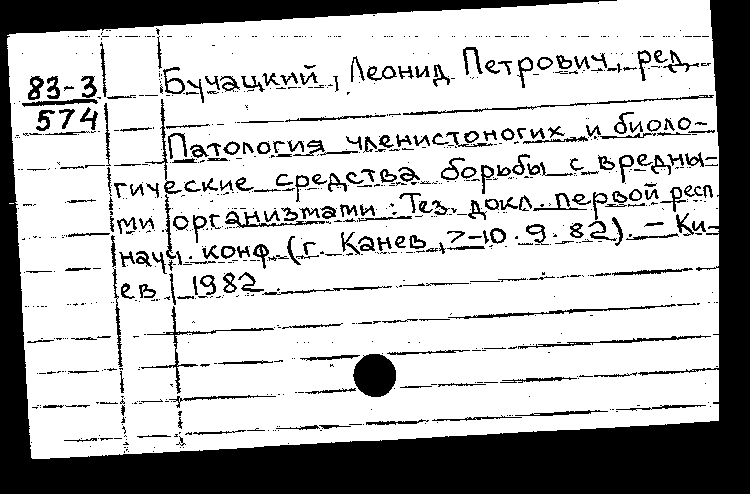 83-3
574
Бучацкий, Леонид Петрович, ред.
Патология членистоногих и биоло-
гические средства борьбы с вредны-
ми организмами: Тез. докл. первой респ.
науч. конф. (г. Канев, 7-10.9.82). – Ки-
ев 1982